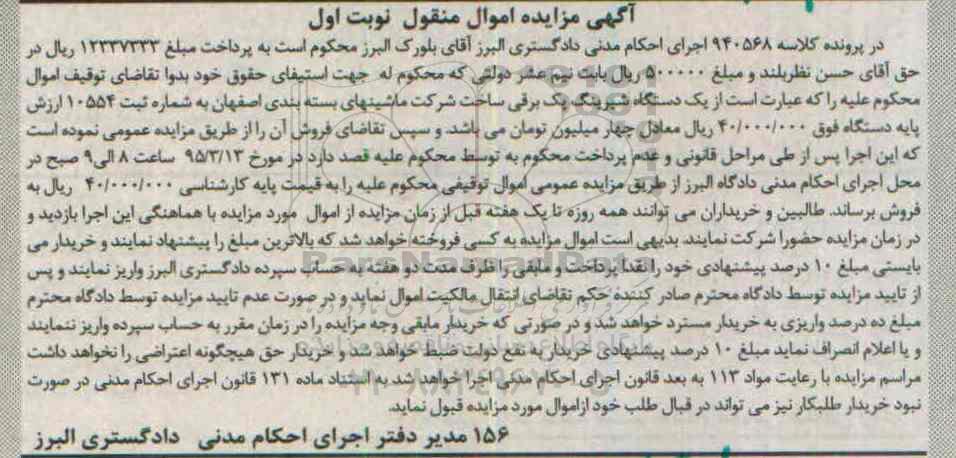 آگهی مزایده اموال منقول نوبت اول
در پرونده کلاسه ۹۴۰۵۶۸ اجرای احکام مدنی دادگستری البرز آقای بلورک البرز محکوم است به پرداخت مبلغ ۱۲۳۳۷۳۳۳ ریال در
حق آقای حسن نظربلند و مبلغ ۵۰۰۰۰۰ ریال بابت نیم عشر دولتی که محکوم له جهت استیفای حقوق خود بدوا تقاضای توقیف اموال
محکوم علیه را که عبارت است از یک دستگاه شیرینگ پک برقی ساخت شرکت ماشینهای بسته بندی اصفهان به شماره ثبت ۱۰۵۵۴ ارزش
پایه دستگاه فوق ۴۰/۰۰۰/۰۰۰ ریال معادل چهار میلیون تومان می باشد. و سپس تقاضای فروش آن را از طریق مزایده عمومی نموده است
که این اجرا پس از طی مراحل قانونی و عدم پرداخت محکوم به توسط محکوم علیه قصد دارد در مورخ ۹۵/۳/۱۳ ساعت ۸ الی۹ صبح در
محل اجرای احکام مدنی دادگاه البرز از طریق مزایده عمومی اموال توقیفی محکوم علیه را به قیمت پایه کارشناسی ۴۰/۰۰۰/۰۰۰ ریال به
فروش برساند. طالبین و خریداران می توانند همه روزه تا یک هفته قبل از زمان مزایده از اموال مورد مزایده با هماهنگی این اجرا بازدید و
در زمان مزایده حضورا شرکت نمایند. بدیهی است اموال مزایده به کسی فروخته خواهد شد که بالاترین مبلغ را پیشنهاد نمایند و خریدار می
بایستی مبلغ ۱۰ درصد پیشنهادی خود را نقدا پرداخت و مابقی را ظرف مدت دو هفته به حساب سپرده دادگستری البرز واریز نمایند و پس
از تایید مزایده توسط دادگاه محترم صادر کننده حکم تقاضای انتقال مالکیت اموال نماید و در صورت عدم تایید مزایده توسط دادگاه محترم
مبلغ ده درصد واریزی به خریدار مسترد خواهد شد و در صورتی که خریدار مابقی وجه مزایده را در زمان مقرر به حساب سپرده واریز ننمایند
و یا اعلام انصراف نماید مبلغ ۱۰ درصد پیشنهادی خریدار به نفع دولت ضبط خواهد شد و خریدار حق هیچگونه اعتراضی را نخواهد داشت
مراسم مزایده با رعایت مواد ۱۱۳ به بعد قانون اجرای احکام مدنی اجرا خواهد شد به استناد ماده ۱۳۱ قانون اجرای احکام مدنی در صورت
نبود خریدار طلبکار نیز می تواند در قبال طلب خود ازاموال مورد مزایده قبول نماید.
۱۵۶ مدیر دفتر اجرای احکام مدنی دادگستری البرز
ParsNamadData